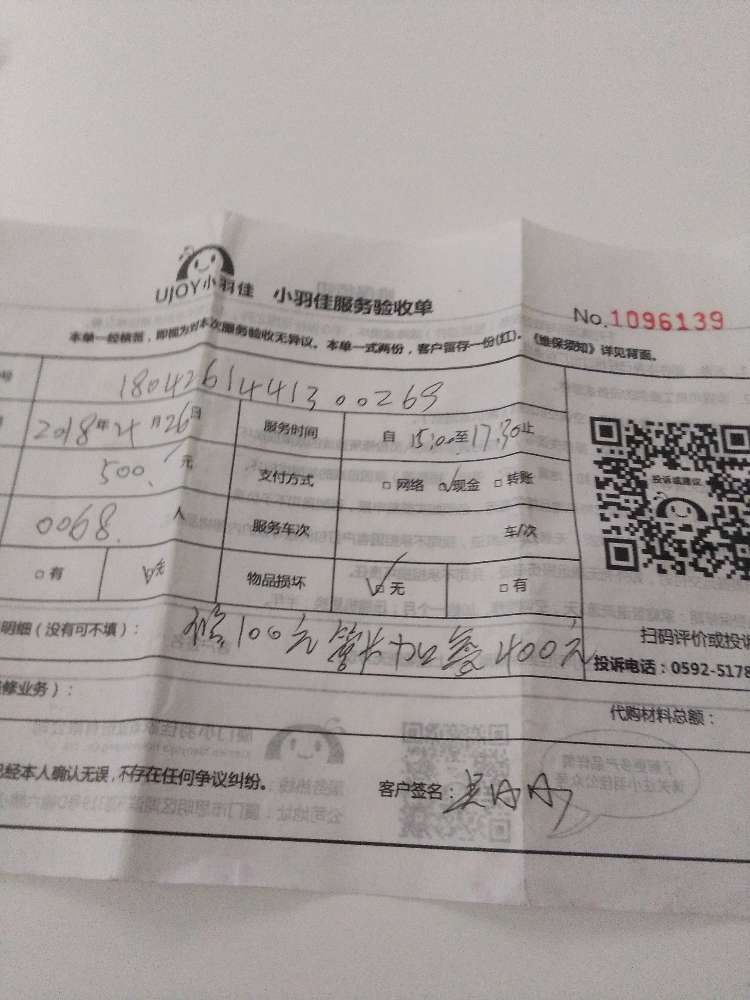 UJOY小羽佳 小羽佳服务验收单
No.1096139
本单一经核签，即视为对本次服务验收无异议。本单一式两份，客户留存一份(红)。《维保须知》详见背面。
号 1804261441300269
2018年4月26日 服务时间 自15:00至17:30止
500.元 支付方式 □网络 ☑现金 □转账
0068.人 服务车次 车/次
□有 无 物品损坏 ☑无 □有
投诉或建议
明细（没有可不填）： 100元 400元
扫码评价或投诉
投诉电话：0592-5178
修业务）： 代购材料总额：
已经本人确认无误，不存在任何争议纠纷。 客户签名：